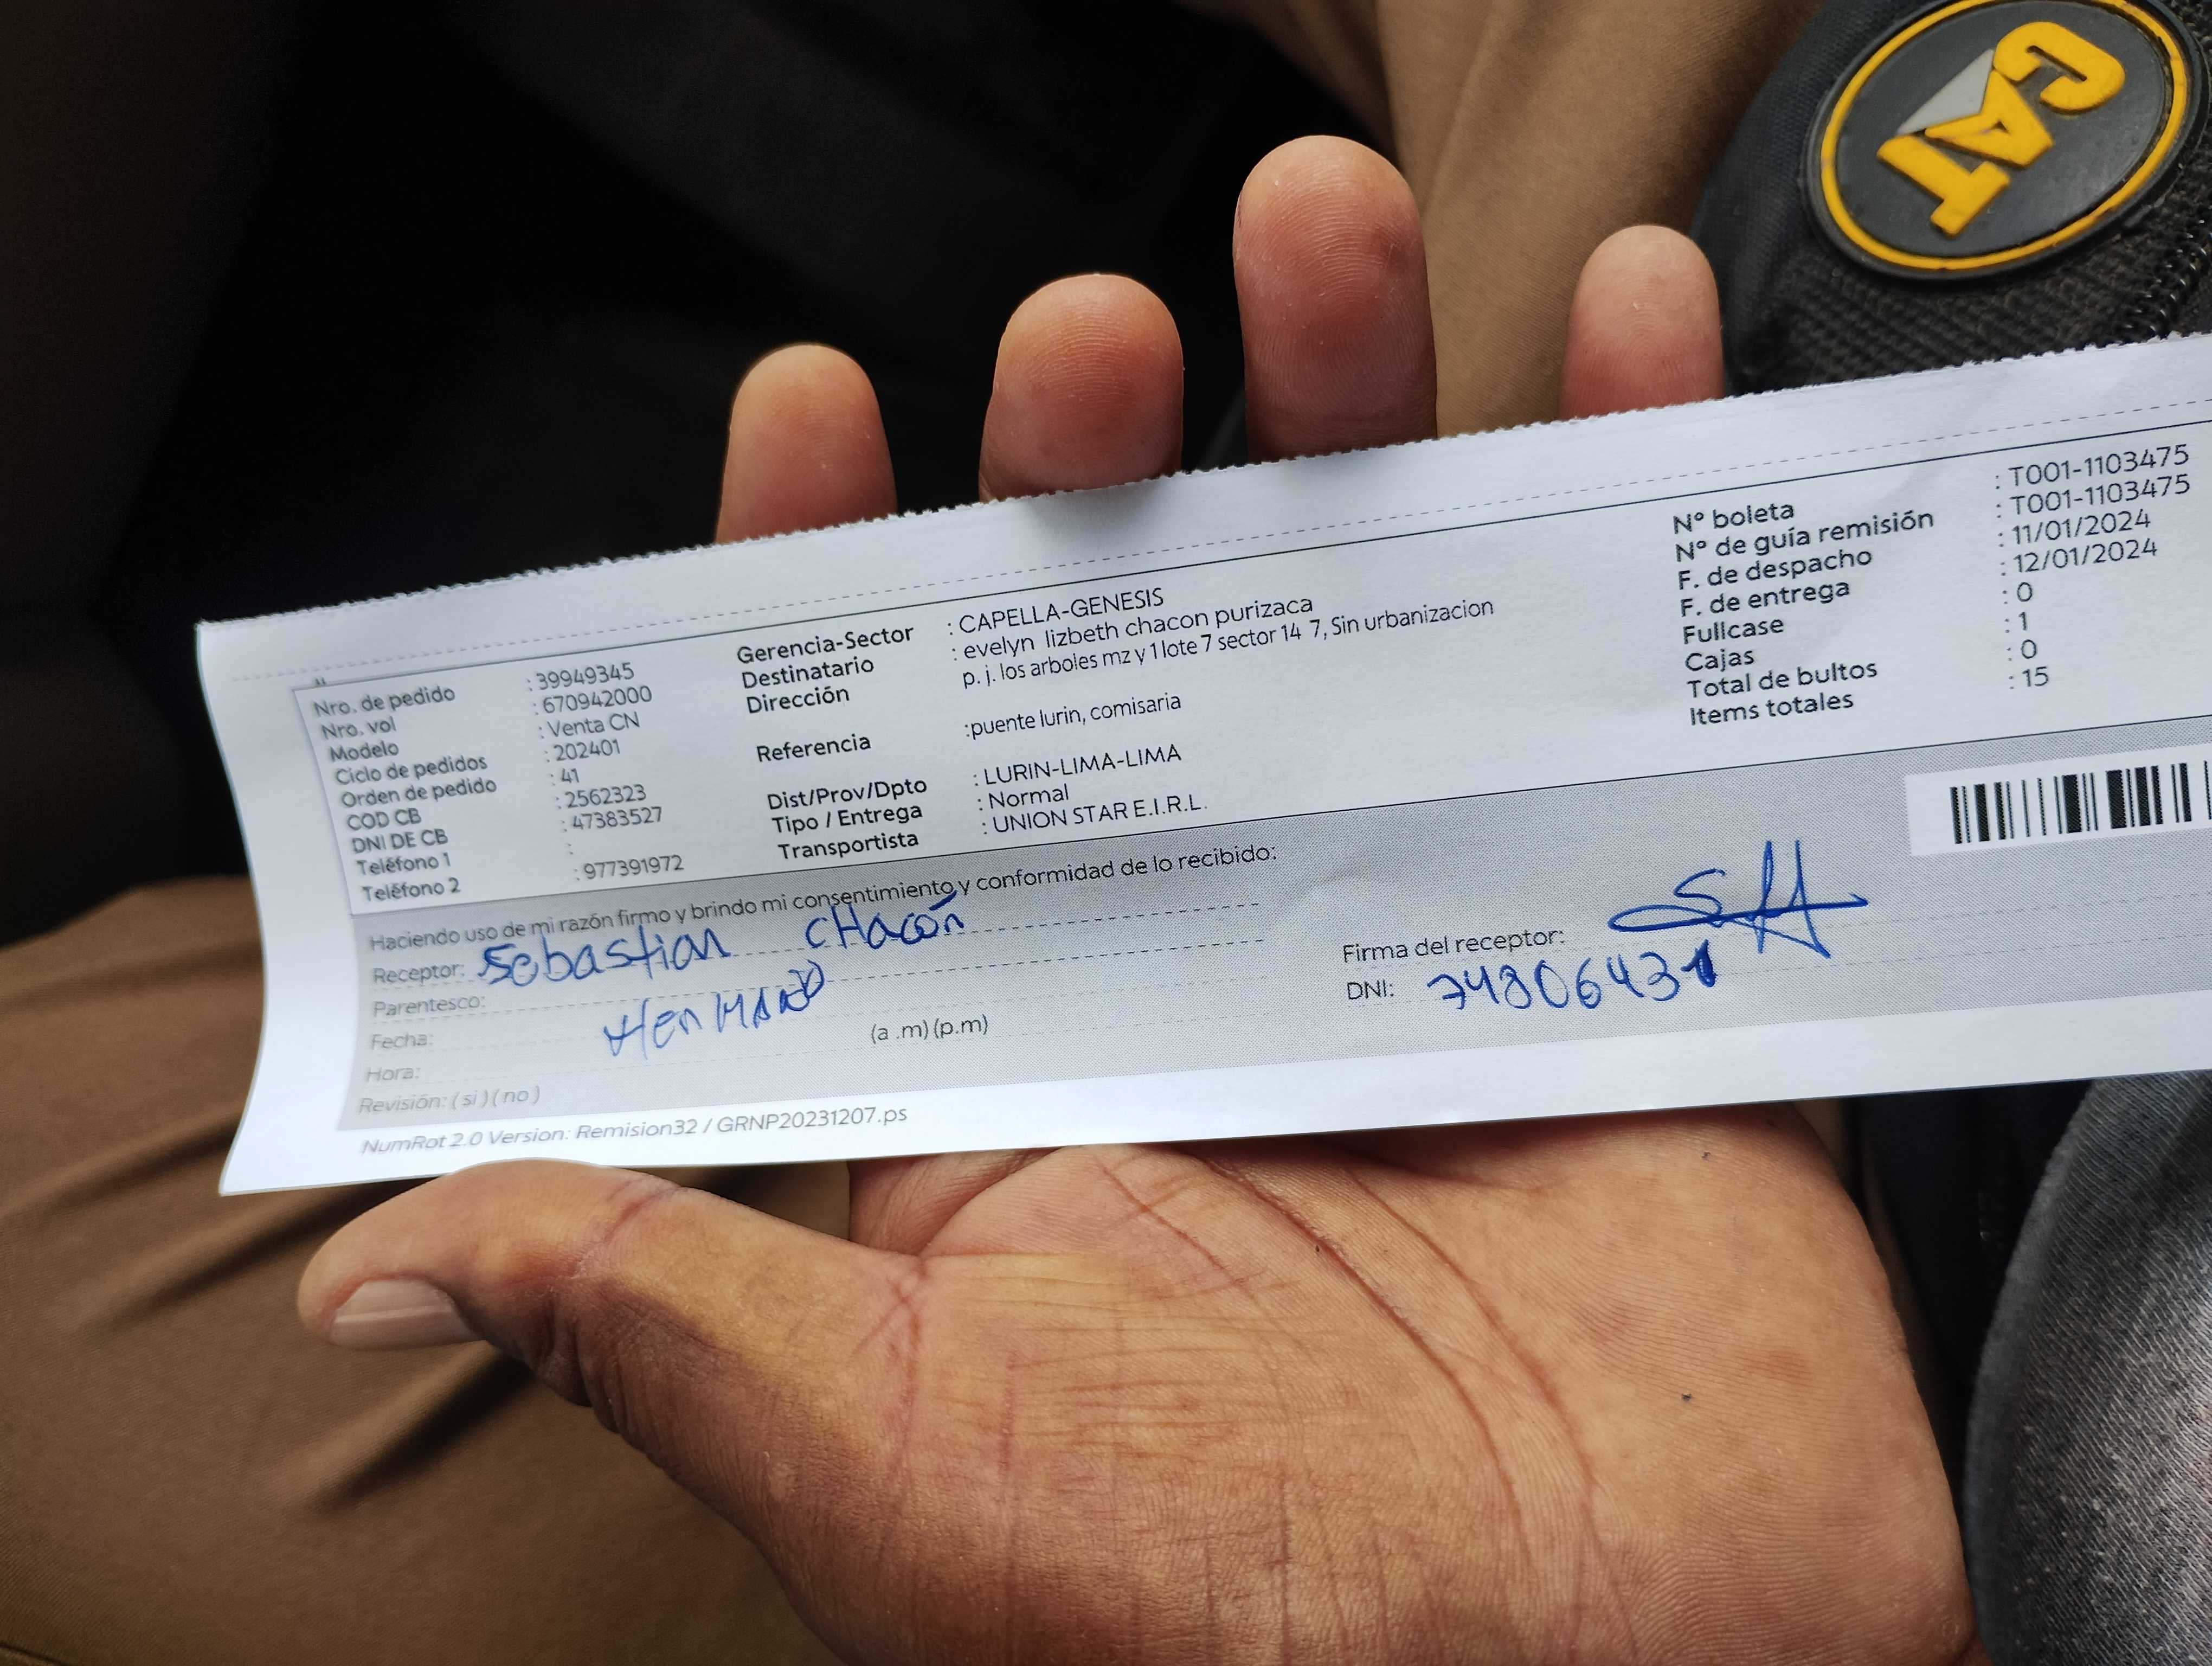 CAT
Nro. de pedido : 39949345
Nro. vol : 670942000
Modelo : Venta CN
Ciclo de pedidos : 202401
Orden de pedido : 41
COD CB : 2562323
DNI DE CB : 47383527
Teléfono 1 :
Teléfono 2 : 977391972
Gerencia-Sector : CAPELLA-GENESIS
Destinatario : evelyn lizbeth chacon purizaca
Dirección p. j. los arboles mz y 1 lote 7 sector 14 7, Sin urbanizacion
Referencia :puente lurin, comisaria
Dist/Prov/Dpto : LURIN-LIMA-LIMA
Tipo / Entrega : Normal
Transportista : UNION STAR E.I.R.L.
N° boleta : T001-1103475
N° de guía remisión : T001-1103475
F. de despacho : 11/01/2024
F. de entrega : 12/01/2024
Fullcase : 0
Cajas : 1
Total de bultos : 0
Items totales : 15
Haciendo uso de mi razón firmo y brindo mi consentimiento y conformidad de lo recibido:
Receptor: Sebastian cHacón
Parentesco: HerMANO
Fecha:
Hora: (a .m) (p.m)
Revisión: ( si ) ( no )
Firma del receptor:
DNI: 74806431
NumRot 2.0 Version: Remision32 / GRNP20231207.ps